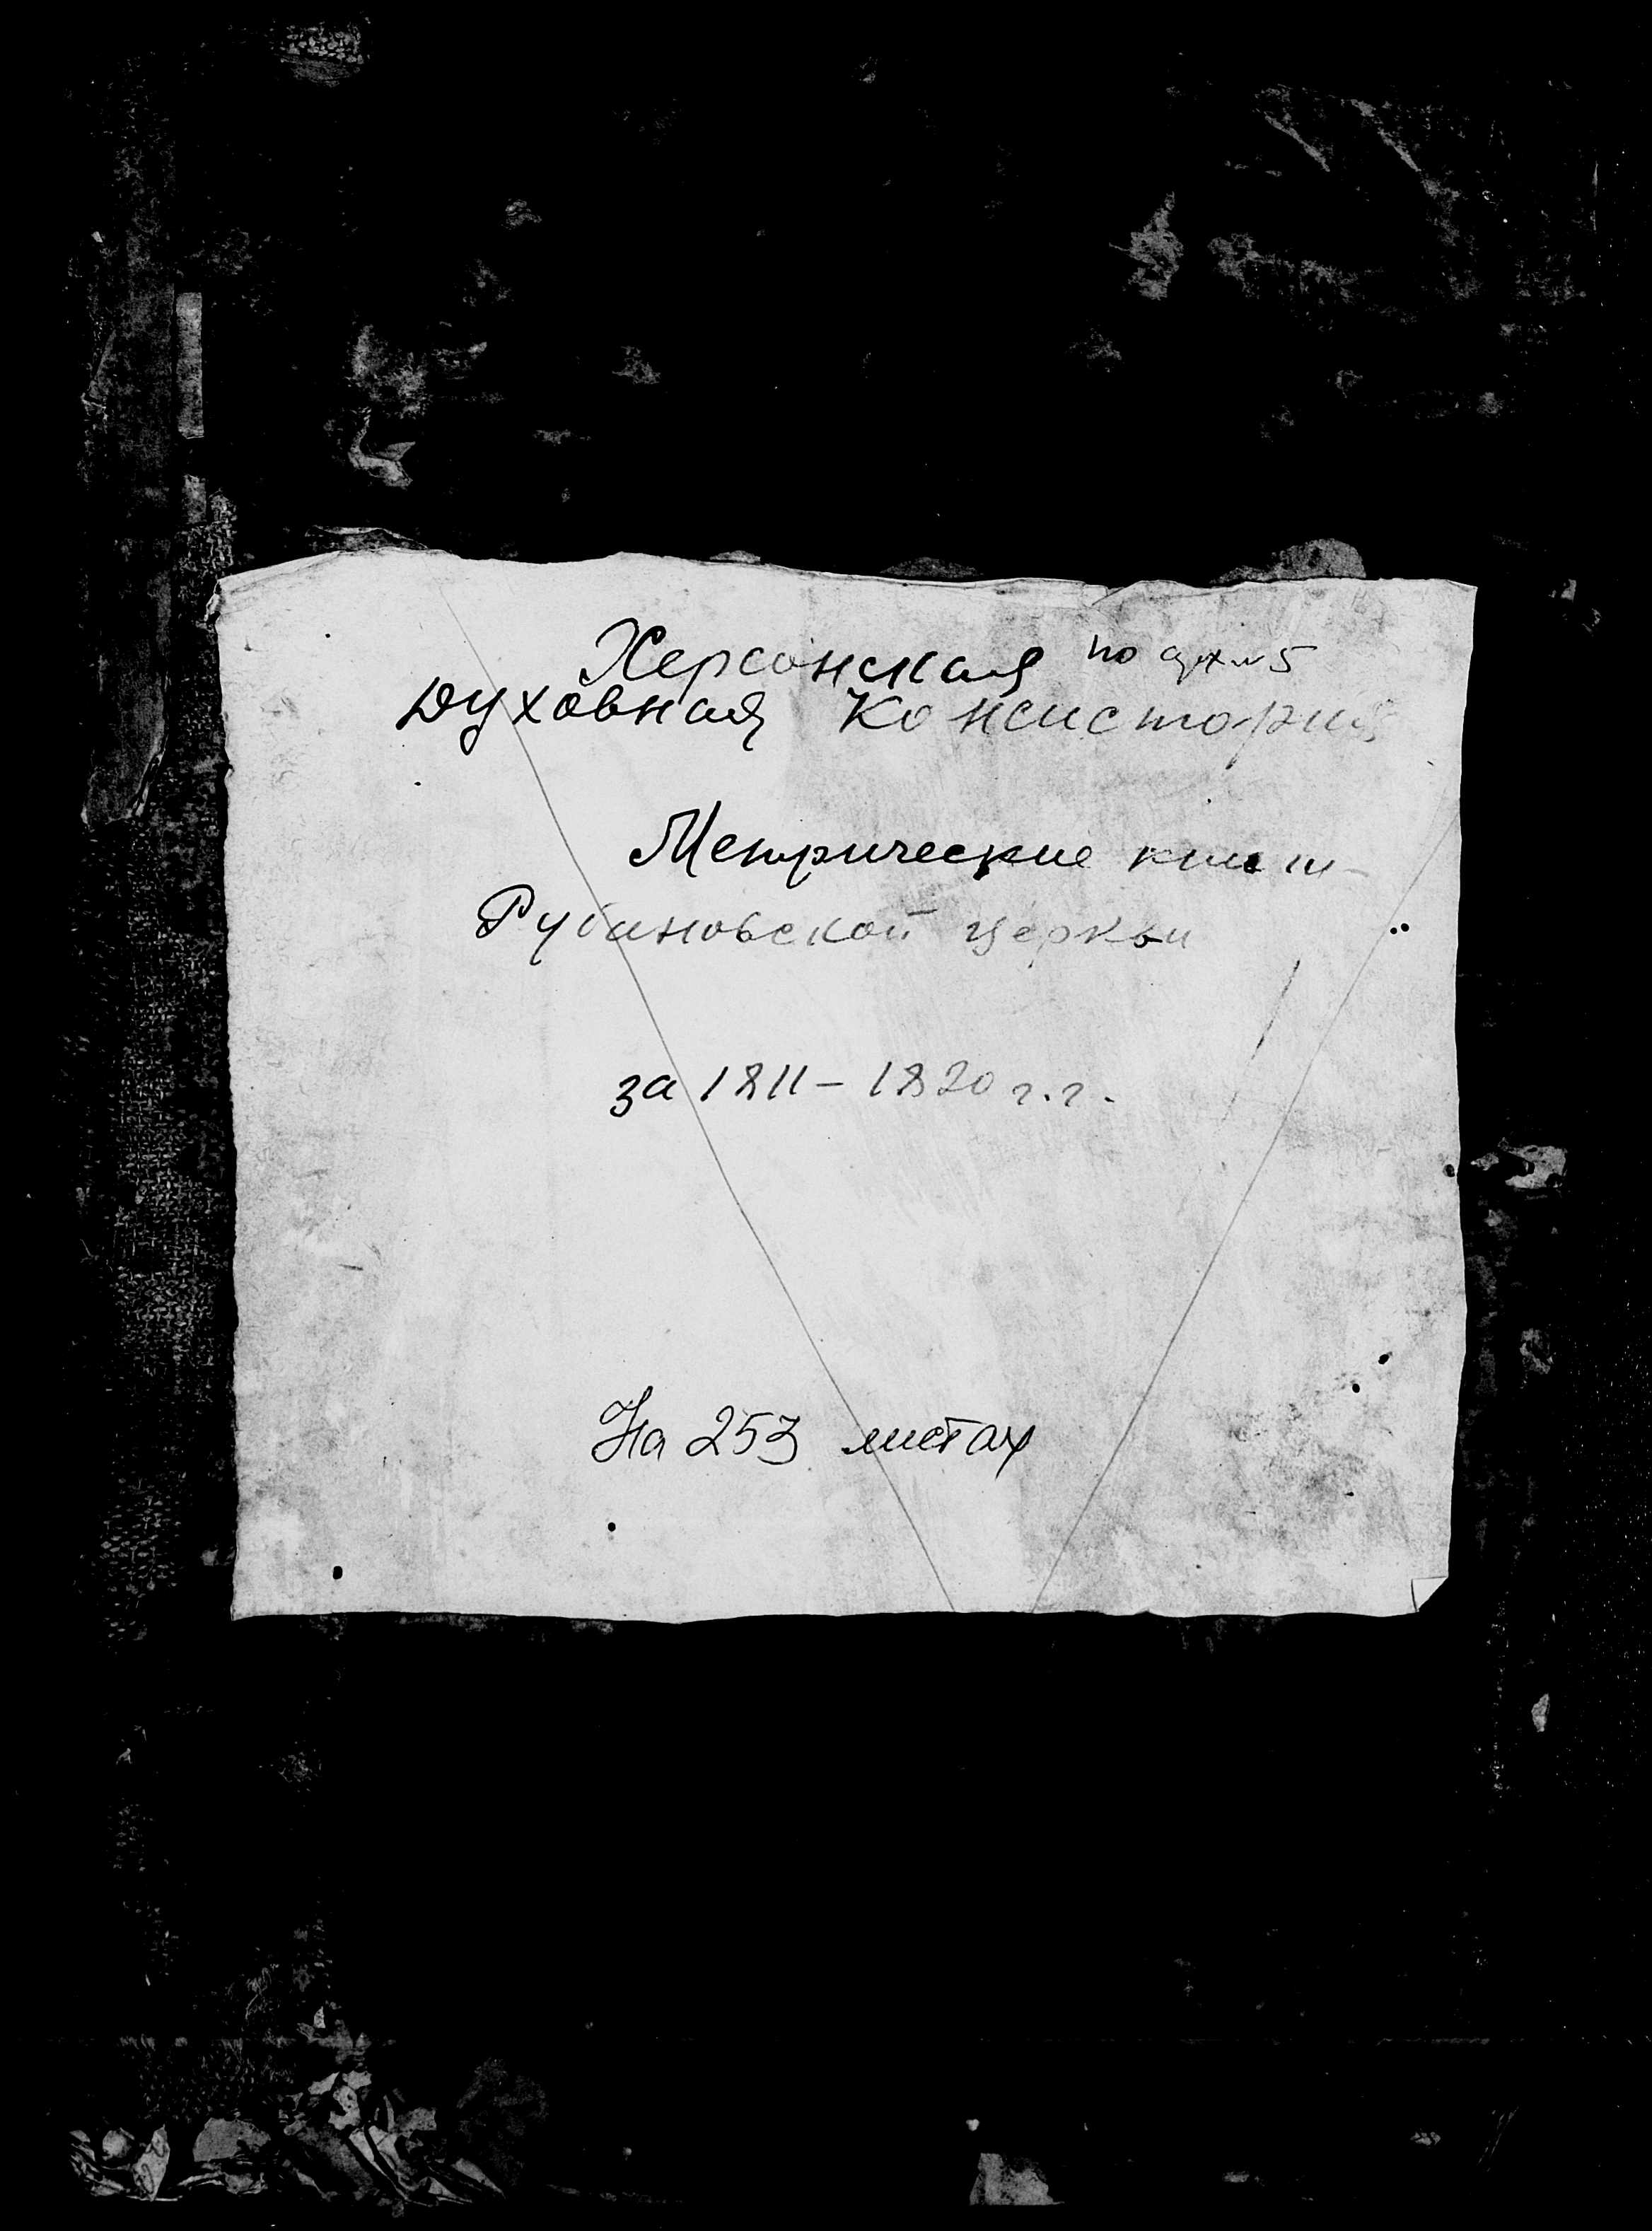 Херсонская
Духовная Консистория
Метрические книги
Рубановской церкви
за 1811 – 1820 г.г.
На 253 листах